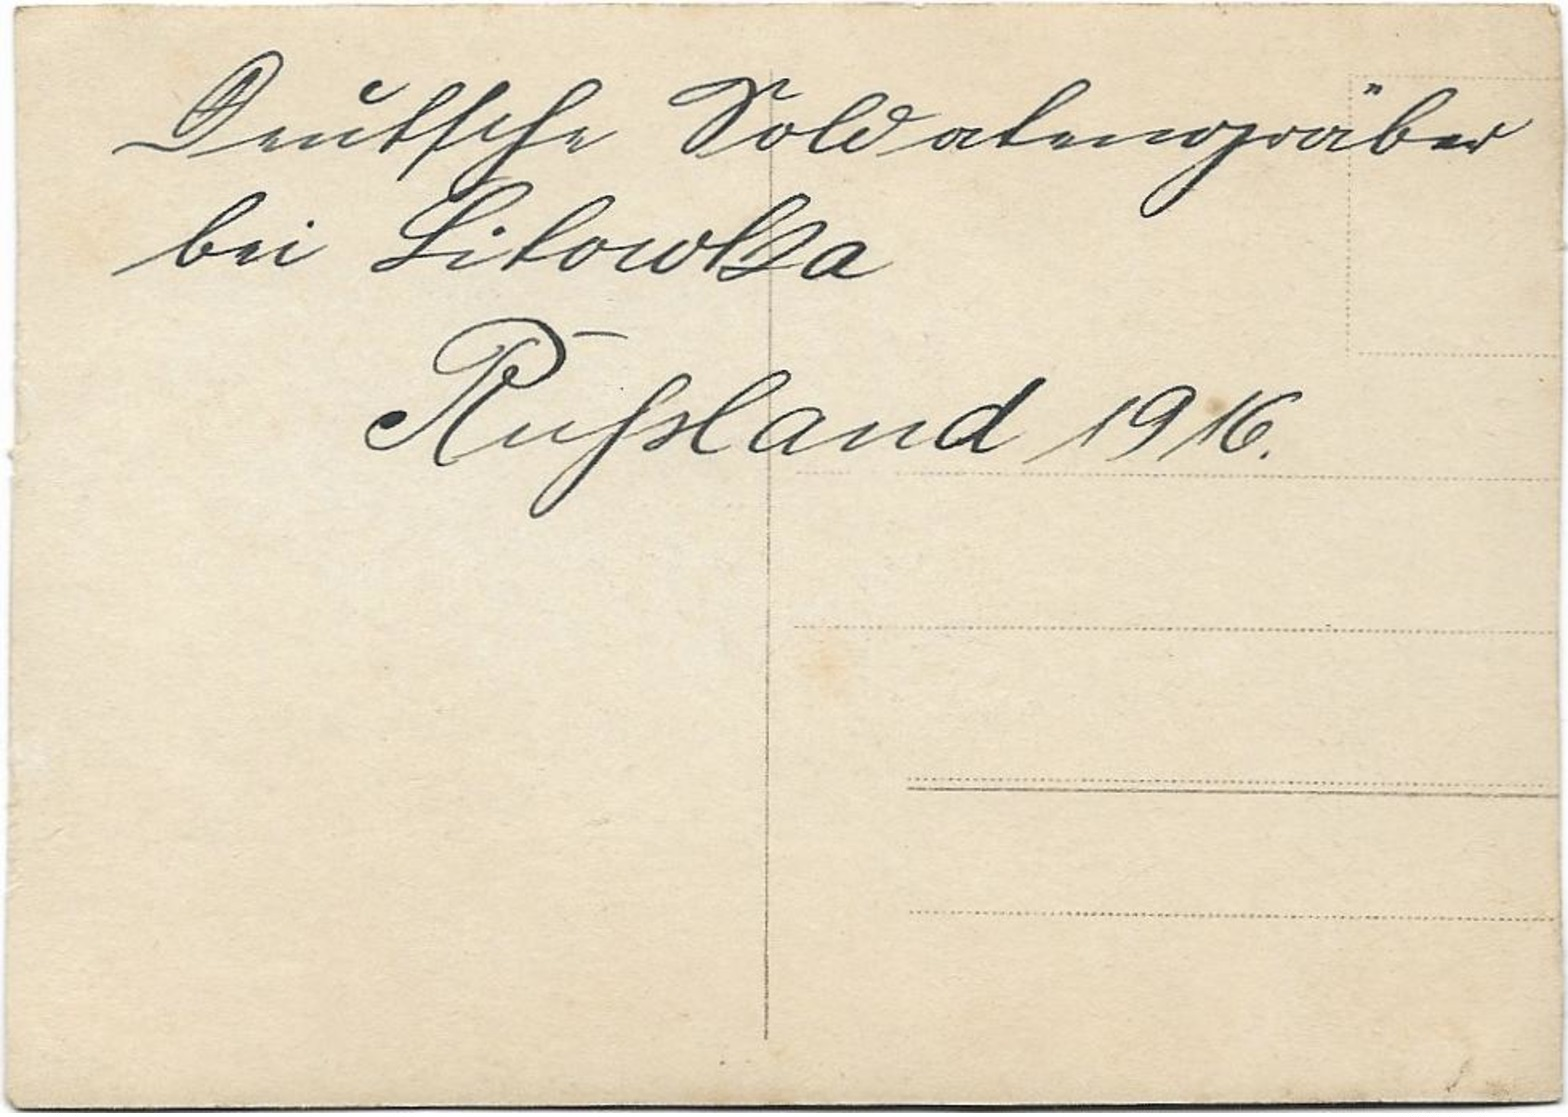 Deutsche Soldatengräber
bei Litowka
Russland 1916.